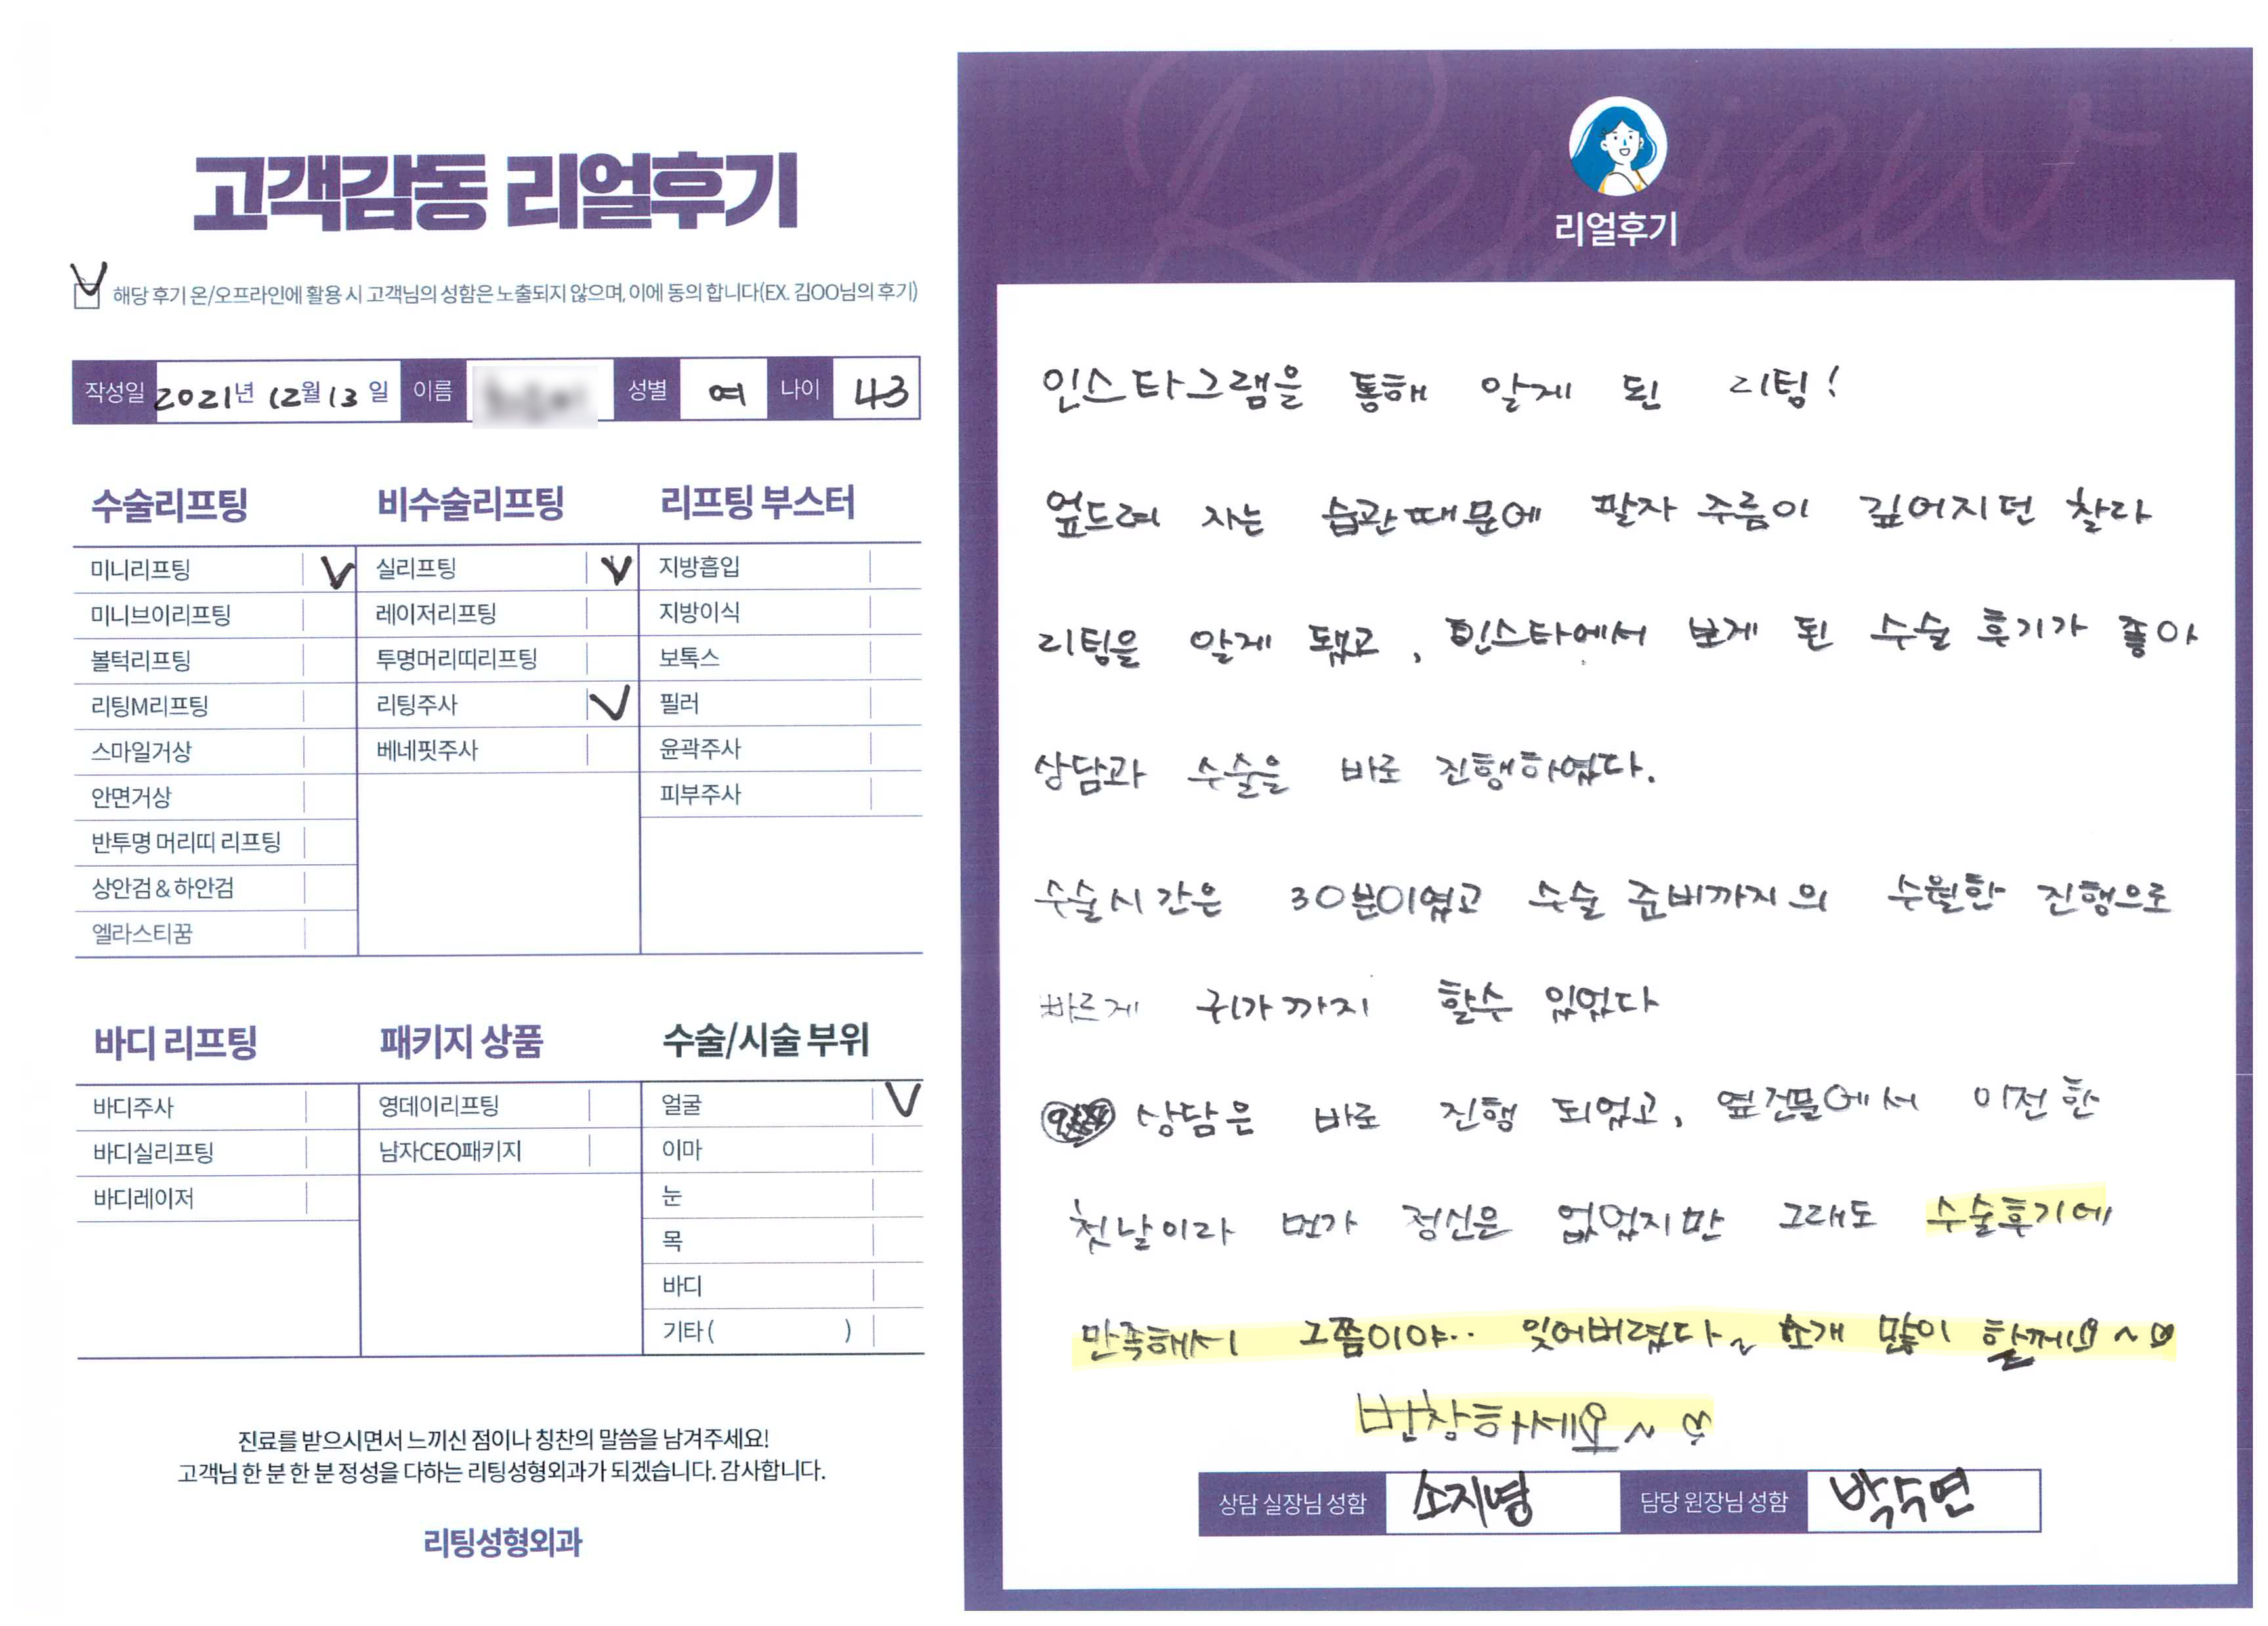 고객감동 리얼후기
해당 후기 온/오프라인에 활용 시 고객님의 성함은 노출되지 않으며, 이에 동의 합니다(EX. 김OO님의 후기)
작성일 2021년 12월 13일 이름 성별 여 나이 43
수술리프팅
미니리프팅 V
미니브이리프팅
볼턱리프팅
리팅M리프팅
스마일거상
안면거상
반투명 머리띠 리프팅
상안검 & 하안검
엘라스티꿈
비수술리프팅
실리프팅 V
레이저리프팅
투명머리띠리프팅
리팅주사 V
베네핏주사
리프팅 부스터
지방흡입
지방이식
보톡스
필러
윤곽주사
피부주사
바디 리프팅
바디주사
바디실리프팅
바디레이저
패키지 상품
영데이리프팅
남자CEO패키지
수술/시술 부위
얼굴 V
이마
눈
목
바디
기타 ( )
진료를 받으시면서 느끼신 점이나 칭찬의 말씀을 남겨주세요!
고객님 한 분 한 분 정성을 다하는 리팅성형외과가 되겠습니다. 감사합니다.
리팅성형외과
Review
리얼후기
인스타그램을 통해 알게 된 리팅!
엎드려 자는 습관때문에 팔자 주름이 깊어지던 찰라
리팅을 알게 됐고, 인스타에서 보게 된 수술 후기가 좋아
상담과 수술을 바로 진행하였다.
수술시간은 30분이였고 수술 준비까지의 수월한 진행으로
빠르게 귀가까지 할수 있었다
상담은 바로 진행 되었고, 옆건물에서 이전한
첫날이라 먼가 정신은 없었지만 그래도 수술후기에
만족해서 그쯤이야.. 잊어버렸다~ 소개 많이 할께요~♡
번창하세요~
상담 실장님 성함 소지영 담당 원장님 성함 박수연